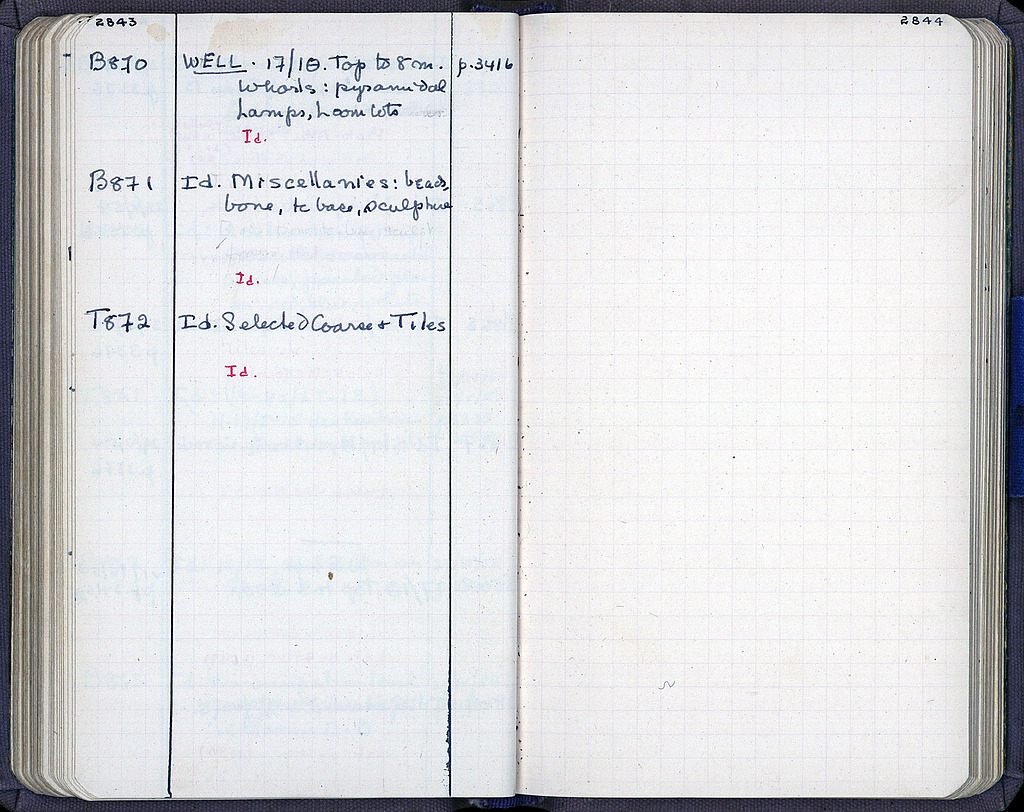 2843
B870 WELL. 17/1Θ. Top to 8m. p.3416
Whorls: pyramidal
Lamps, Loomwts
Id.
B871 Id. Miscellanies: beads,
bone, tc base, sculpture
Id.
T872 Id. Selected Coarse + Tiles
Id.
2844